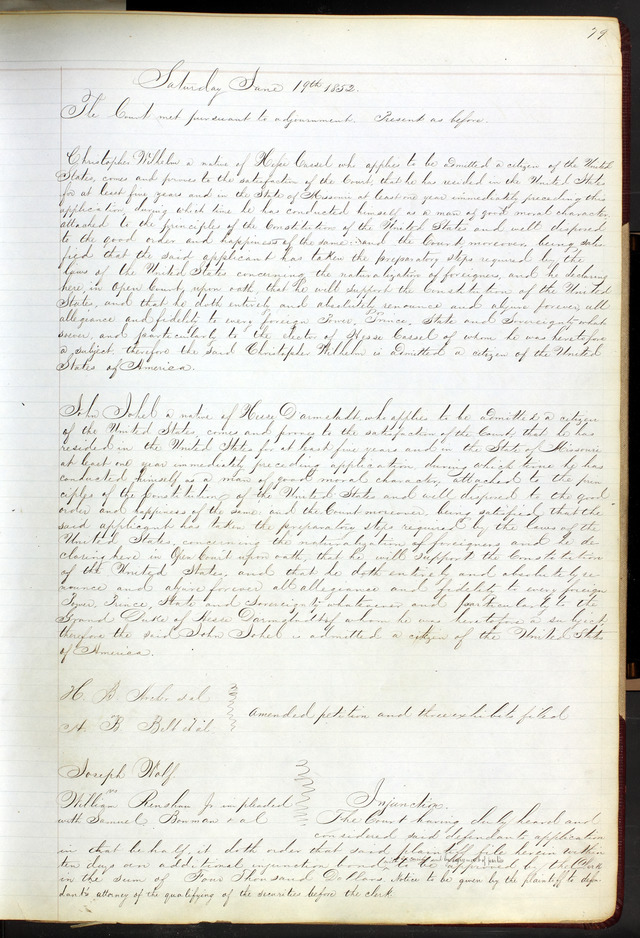 79
Saturday June 19th 1852.
The Court met pursuant to adjournment. Present as before.
Christopher Wilhelm a native of Hesse Cassel who applies to be admitted a citizen of the United
States, comes and proves to the satisfaction of the Court, that he has resided in the United States
for at least five years and in the State of Missouri at least one year immediately preceding this
application, during which time he has conducted himself as a man of good moral character,
attached to the principles of the Constitution of the United States and well disposed
to the good order and happiness of the same: and the Court moreover, being satis
fied that the said applicant has taken the preparatory steps required by the
laws of the United States concerning the naturalization of foreigners, and he declaring
here, in open Court, upon oath, that he will support the Constitution of the United
States, and that he doth entirely and absolutely renounce and abjure forever, all
allegiance and fidelity to every foreign Power, Prince, State and Sovereignty what
soever, and particularly to the elector of Hesse Cassel of whom he was heretofore
a subject, therefore the said Christopher Wilhelm is admitted a citizen of the United
States of America.
John Johel a native of Hesse Darmstadt, who applies to be admitted a citizen
of the United States, comes and proves to the satisfaction of the Court, that he has
resided in the United States for at least five years and in the State of Missouri
at least one year immediately preceding application, during which time he has
conducted himself as a man of good moral character, attached to the prin
ciples of the Constitution of the United States and well disposed to the good
order and happiness of the same: and the Court moreover, being satisfied that the
said applicant has taken the preparatory steps required by the laws of the
United States, concerning the naturalization of foreigners and he de
claring here in Open Court upon oath, that he will support the Constitution
of the United States, and that he doth entirely and absolutely re
nounce and abjure forever all allegiance and fidelity to every foreign
Power, Prince, State and Sovereignty whatsoever and particularly to the
Grand Duke of Hesse Darmstadt of whom he was heretofore a subject,
therefore the said John Johel is admitted a citizen of the United States
of America.
H. B et al
A. B Belt et al
amended petition and three exhibits filed
Joseph Wolf
vs
William Renshaw Jr impleaded
with Samuel Bowman et al
Injunction.
The Court having duly heard and
considered said defendants application
in that behalf, it doth order that said plaintiff file herein within
ten days an additional injunction bond, to be approved by the Clerk
in the sum of Four Thousand Dollars. Notice to be given by the plaintiff to defen
dant's attorney of the qualifying of the securities before the clerk.